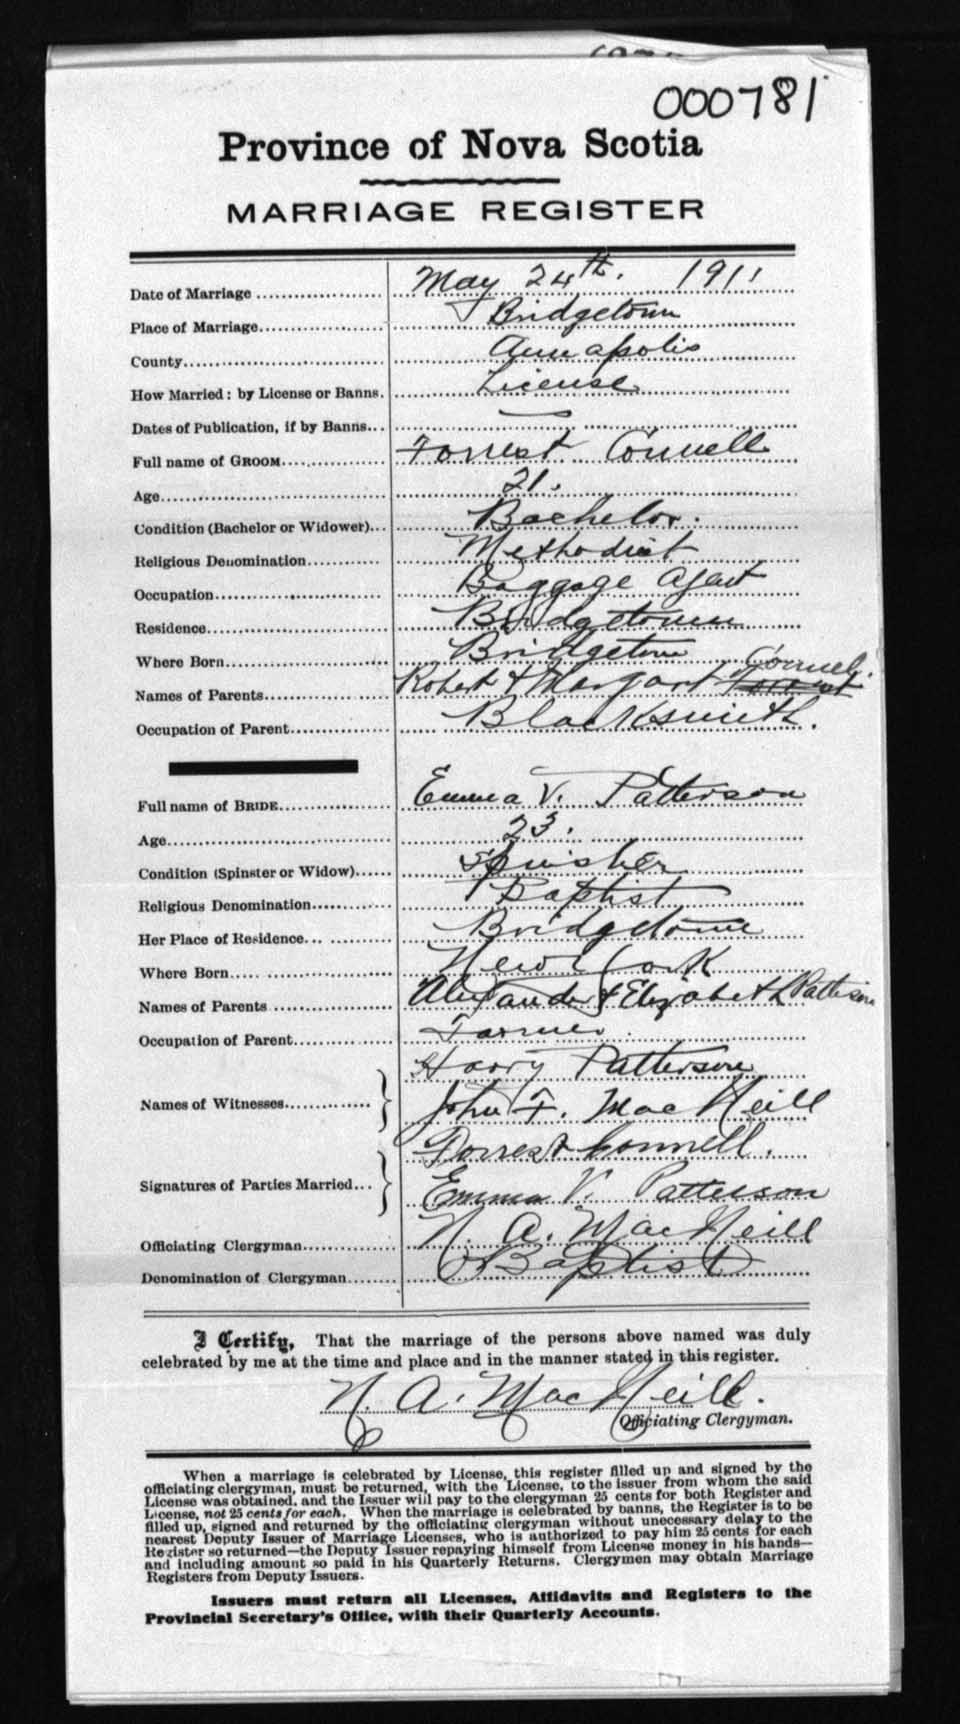 000781
Province of Nova Scotia
MARRIAGE REGISTER
Date of Marriage May 24th. 1911
Place of Marriage Bridgetown
County Annapolis
How Married: by License or Banns. License
Dates of Publication, if by Banns —
Full name of GROOM Forrest Connell
Age 21.
Condition (Bachelor or Widower) Bachelor.
Religious Denomination Methodist
Occupation Baggage Agent
Residence Bridgetown
Where Born Bridgetown
Names of Parents Robert & Margart Connell.
Occupation of Parent Blacksmith.
Full name of BRIDE Emma V. Patterson
Age 23.
Condition (Spinster or Widow) Spinster
Religious Denomination Baptist
Her Place of Residence Bridgetown
Where Born New York
Names of Parents Alexander & Elizabeth Patterson
Occupation of Parent Farmer.
Harry Patterson
Names of Witnesses John F. MacNeill
Forrest Connell.
Signatures of Parties Married Emma V. Patterson
Officiating Clergyman N. A. MacNeill
Denomination of Clergyman Baptist
I Certify, That the marriage of the persons above named was duly
celebrated by me at the time and place and in the manner stated in this register.
N. A. MacNeill.
Officiating Clergyman.
When a marriage is celebrated by License, this register filled up and signed by the
officiating clergyman, must be returned, with the License, to the issuer from whom the said
License was obtained, and the Issuer will pay to the clergyman 25 cents for both Register and
License, not 25 cents for each. When the marriage is celebrated by banns, the Register is to be
filled up, signed and returned by the officiating clergyman without unnecessary delay to the
nearest Deputy Issuer of Marriage Licenses, who is authorized to pay him 25 cents for each
Register so returned—the Deputy Issuer repaying himself from License money in his hands—
and including amount so paid in his Quarterly Returns. Clergymen may obtain Marriage
Registers from Deputy Issuers.
Issuers must return all Licenses, Affidavits and Registers to the
Provincial Secretary's Office, with their Quarterly Accounts.